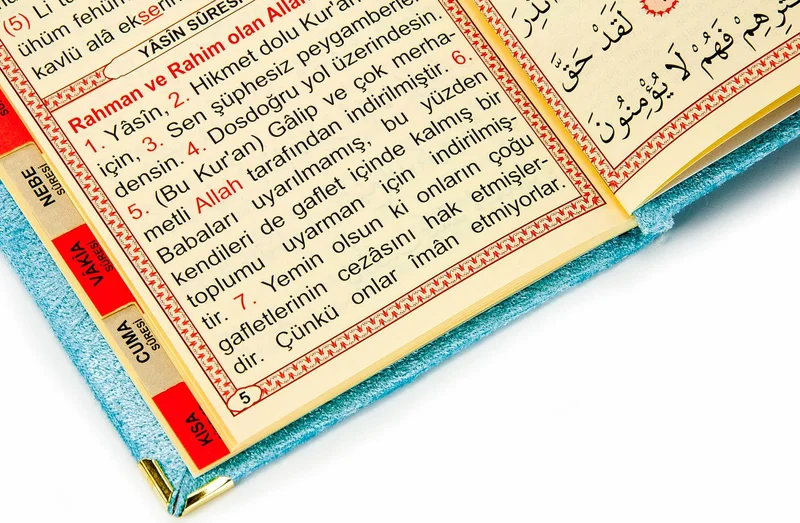 (5) Li
ühüm fehüm
kavlü alâ ekse
YÂSİN SÛRESİ
Rahman ve Rahim olan Allah
1. Yâsîn, 2. Hikmet dolu Kur'an
için, 3. Sen şüphesiz peygamberler
densin. 4. Dosdoğru yol üzerindesin.
5. (Bu Kur'an) Gâlip ve çok merha-
metli Allah tarafından indirilmiştir. 6.
Babaları uyarılmamış, bu yüzden
kendileri de gaflet içinde kalmış bir
toplumu uyarman için indirilmiş-
tir. 7. Yemin olsun ki onların çoğu
gafletlerinin cezâsını hak etmişler-
dir. Çünkü onlar îmân etmiyorlar.
5
NEBE
SÛRESİ
VÂKİA
SÛRESİ
CUMA
SÛRESİ
KISA
لَقَدْ حَقَّ
فَهُمْ لَا يُؤْمِنُونَ